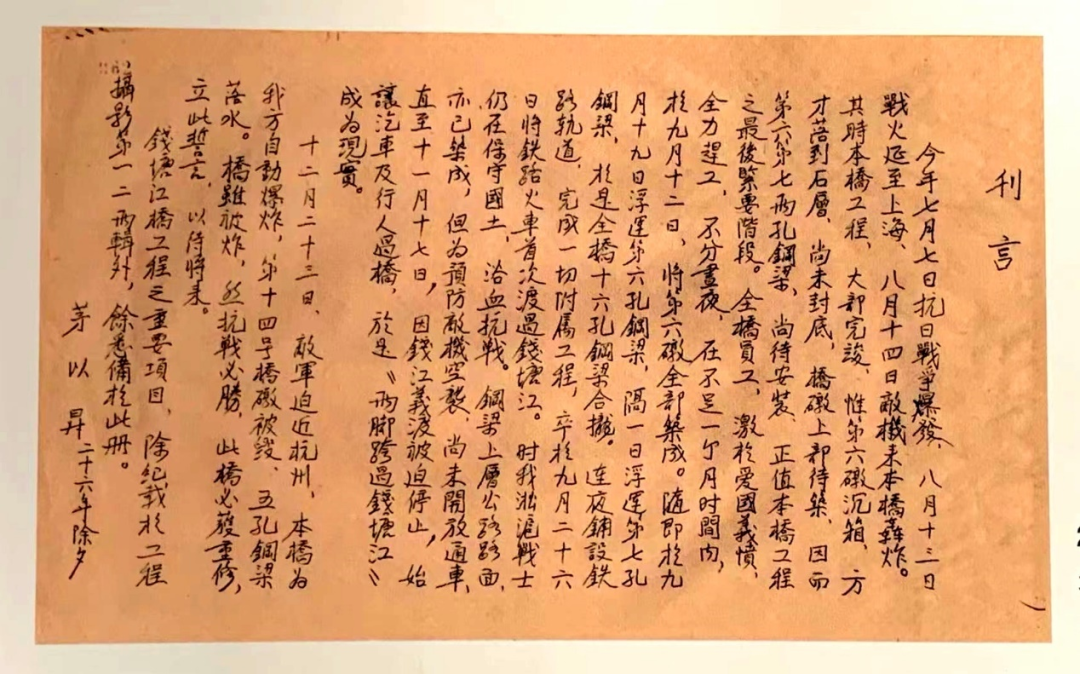 刊言
今年七月七日抗日戰爭爆發、八月十三日
戰火延至上海、八月十四日敵機来本橋轟炸。
其時本橋工程、大部完竣、惟第六礅沉箱、方
才落到石層、尚未封底、橋礅上部待築、因而
第六第七兩孔鋼梁、尚待安裝、正值本橋工程
之最後緊要階段。全橋員工、激於愛國義憤、
全力趕工、不分晝夜、在不足一个月時間内、
於九月十二日、將第六礅全部築成。隨即於九
月十九日浮運第六孔鋼梁、隔一日浮運第七孔
鋼梁、於是全橋十六孔鋼梁合攏。連夜鋪設鉄
路軌道、完成一切附屬工程、卒於九月二十六
日將鉄路火車首次渡過錢塘江。时我淞滬戰士
仍在保守國土、浴血抗戰。鋼梁上層公路路面、
亦已築成、但為預防敵機空襲、尚未開放通車、
直至十一月十七日、因錢江義渡被迫停止、始
讓汽車及行人過橋、於是〝兩脚跨過錢塘江〞
成為現實。
十二月二十三日、敵軍迫近杭州、本橋為
我方自動爆炸、第十四号橋礅被毀、五孔鋼梁
落水。橋雖被炸、然抗戰必勝、此橋必獲重修、
立此誓言、以待將来。
錢塘江橋工程之重要項目、除紀載於工程
攝影第一二兩輯外、餘悉備於此册。
茅以昇 二十六年除夕